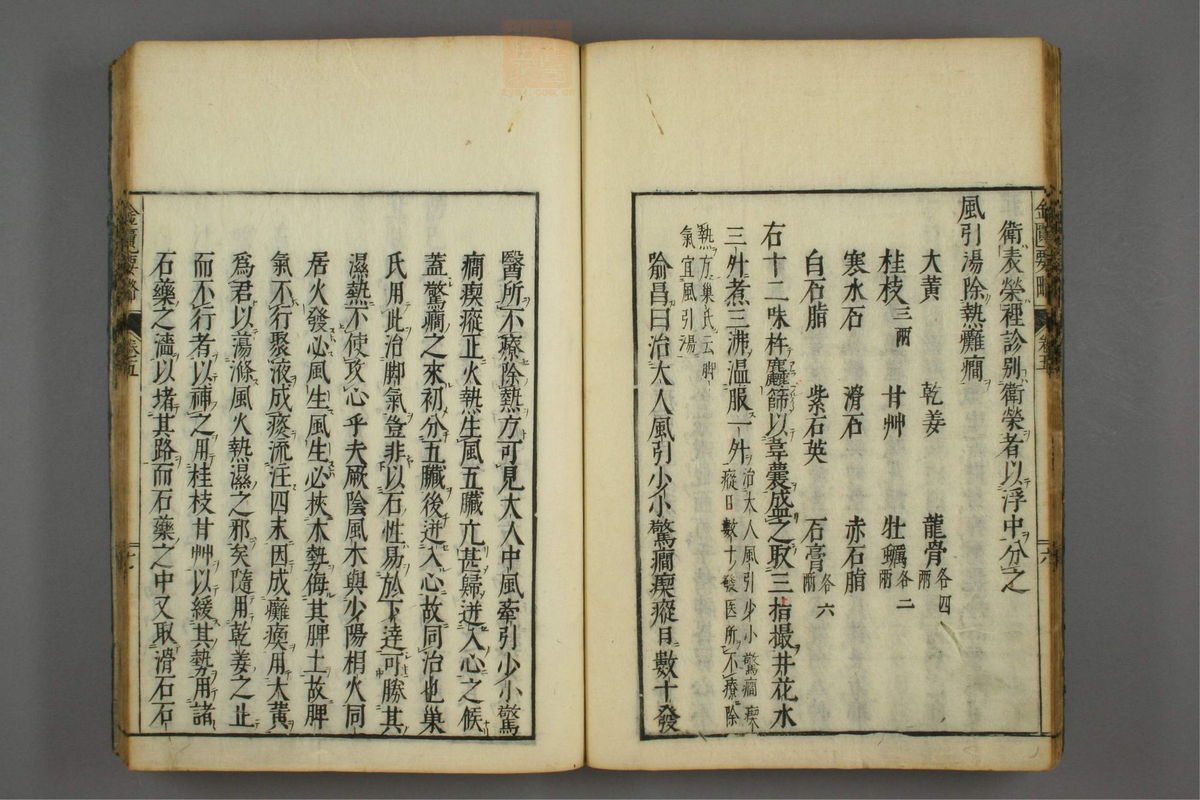 衛表榮裡診別衛榮者以浮中分之
風引湯除熱癱癇
大黃　乾姜　龍骨各四兩
桂枝三兩　甘艸　牡蠣各二兩
寒水石　滑石　赤石脂
白石脂　紫石英　石膏各六兩
右十二味杵麤篩以韋囊盛之取三指撮井花水
三升煮三沸温服一升治大人風引少小驚癇瘈
瘲日數十發医所不療除
熱方巢氏云脚
氣宜風引湯
喻昌曰治大人風引少小驚癇瘈瘲日數十發
醫所不療除熱方可見大人中風牽引少小驚
癇瘈瘲正火熱生風五臓亢甚歸迸入心之候
蓋驚癇之來初分五臓後迸入心故同治也巢
氏用此治脚氣豈非以石性易於下達可勝其
濕熱不使攻心乎夫厥陰風木與少陽相火同
居火發必風生風生必挾木勢侮其脾土故脾
氣不行聚液成痰流注四末因成癱瘓用大黃
爲君以蕩滌風火熱濕之邪矣隨用乾姜之止
而不行者以神之用桂枝甘艸以緩其勢用諸
石藥之濇以堵其路而石藥之中又取滑石石
金匱要略
卷五
六
金匱要略
卷五
七